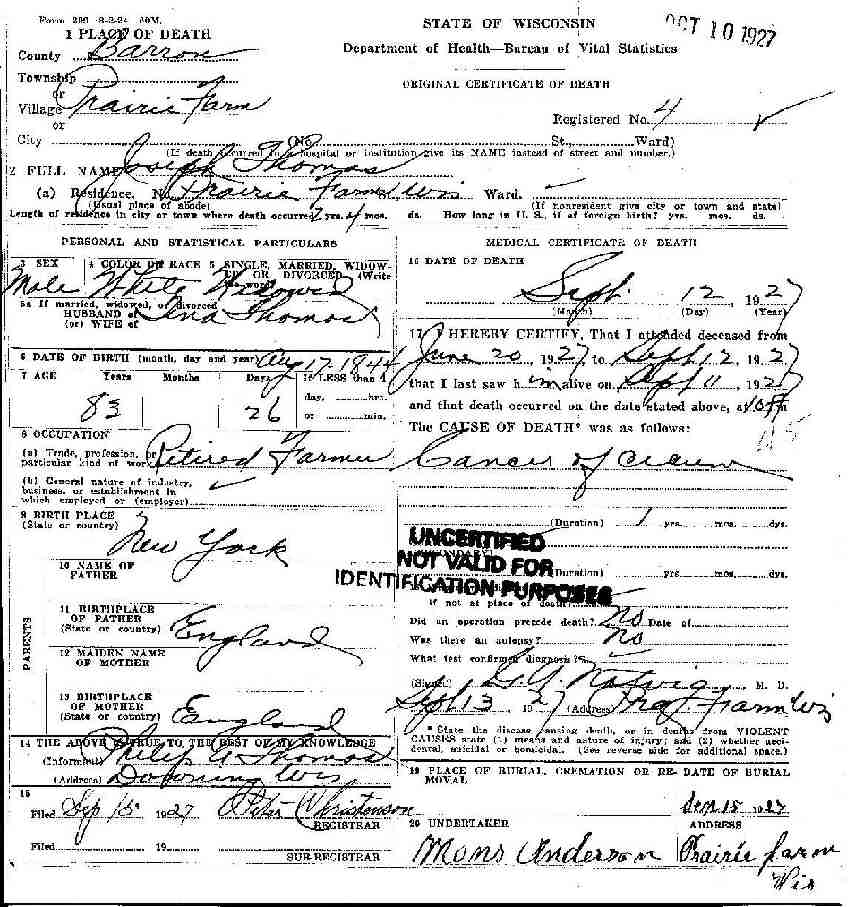 Form 209 8-2-24 50M.
STATE OF WISCONSIN
OCT 10 1927
Department of Health—Bureau of Vital Statistics
ORIGINAL CERTIFICATE OF DEATH
1 PLACE OF DEATH
County Barron
Township
or
Village Prairie Farm
or
Registered No. 4
City (No. St., Ward)
(If death occurred in a hospital or institution give its NAME instead of street and number.)
2 FULL NAME Joseph Thomas
(a) Residence. No. Prairie Farm Wis Ward.
(Usual place of abode) (If nonresident give city or town and state)
Length of residence in city or town where death occurred yrs. mos. ds. How long in U. S., if of foreign birth? yrs. mos. ds.
PERSONAL AND STATISTICAL PARTICULARS
3 SEX 4 COLOR OR RACE 5 SINGLE, MARRIED, WIDOWED OR DIVORCED (Write the word)
Male White Widowed
5a If married, widowed, or divorced
HUSBAND of
(or) WIFE of Lena Thomas
6 DATE OF BIRTH (month, day and year) Aug 17-1844
7 AGE Years Months Days If LESS than 1
day, hrs.
or min.
83 26
8 OCCUPATION
(a) Trade, profession, or
particular kind of work Retired Farmer
(b) General nature of industry,
business, or establishment in
which employed or (employer)
9 BIRTH PLACE
(State or country) New York
10 NAME OF
FATHER
PARENTS
11 BIRTHPLACE
OF FATHER
(State or country) England
12 MAIDEN NAME
OF MOTHER
13 BIRTHPLACE
OF MOTHER
(State or country) England
14 THE ABOVE IS TRUE TO THE BEST OF MY KNOWLEDGE
(Informant) Philip A Thomas
(Address) Downing Wis
15
Filed Sep 15 1927 Christenson
REGISTRAR
Filed 19
SUB REGISTRAR
MEDICAL CERTIFICATE OF DEATH
16 DATE OF DEATH
Sept. 12 1927
(Month) (Day) (Year)
17 I HEREBY CERTIFY, That I attended deceased from
June 20, 1927, to Sept 12, 1927
that I last saw him alive on Sept 11, 1927
and that death occurred on the date stated above, at
The CAUSE OF DEATH* was as follows:
Cancer of
(Duration) 1 yrs. mos. dys.
UNCERTIFIED
NOT VALID FOR
IDENTIFICATION PURPOSES
(Duration) yrs mos. dys.
If not at place of death
Did an operation precede death? No Date of
Was there an autopsy? No
What test confirmed diagnosis?
(Signed) M. D.
Sept 13 1927 (Address) Farm Wis
* State the disease causing death, or in deaths from VIOLENT
CAUSES state (1) means and nature of injury; and (2) whether accidental, suicidal or homicidal. (See reverse side for additional space.)
19 PLACE OF BURIAL, CREMATION OR RE- DATE OF BURIAL
MOVAL
Sep 15 1927
20 UNDERTAKER ADDRESS
Mons Anderson Prairie farm
Wis